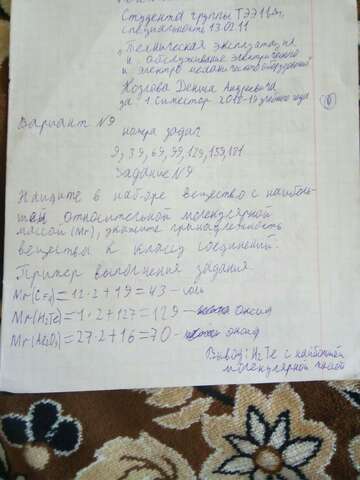 Студента группы ТЭЭ11Дз
Специальность 13.02.11
„Техническая эксплуатация
и обслуживание электрического
и электро механического оборудования"
Козлова Дениса Андреевича
за 1 симестор 2018-19 учебного года
Вариант №9
номра задач
9, 39, 69, 99, 129, 159, 181
Задание №9
Найдите в наборе вещество с наиболь-
шей относительной молекулярной
массой (Mr), укажите принадлежность
вещества к классу соединений.
Пример выполнения задания
= 12·2+19=43 -
Mr(H2Te)=1·2+127=129 - оксид
=27·2+16=70 - оксид
Вывод: H2Te с наибольшей
молекулярной массой